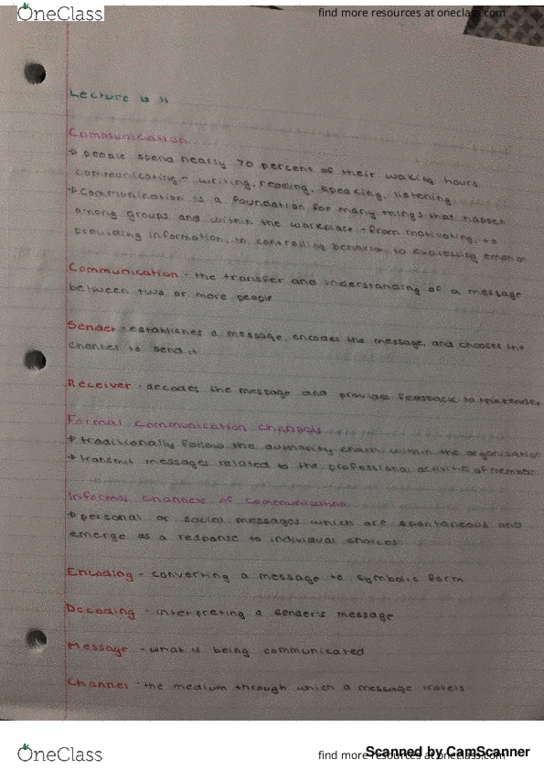 OneClass
find more resources at oneclass.com
Lecture 11
Communication
people spend nearly 70 percent of their waking hours
communicating - writing, reading, speaking, listening
Communication is a foundation for many things that happen
among groups and within the workplace - from motivating, to
providing information, to controlling behavior, to expressing emotion
Communication - the transfer and understanding of a message
between two or more people
Sender - establishes a message, encodes the message, and chooses the
channel to send it
Receiver - decodes the message and provides feedback to the sender
Formal Communication Channels
traditionally follow the authority chain within the organisation
transmit messages related to the professional activities of members
Informal Channels of Communication
personal or social messages which are spontaneous and
emerge as a response to individual choices
Encoding - converting a message to symbolic form
Decoding - interpreting a sender's message
Message - what is being communicated
Channel - the medium through which a message travels
OneClass
find more resources at oneclass.com
Scanned by CamScanner